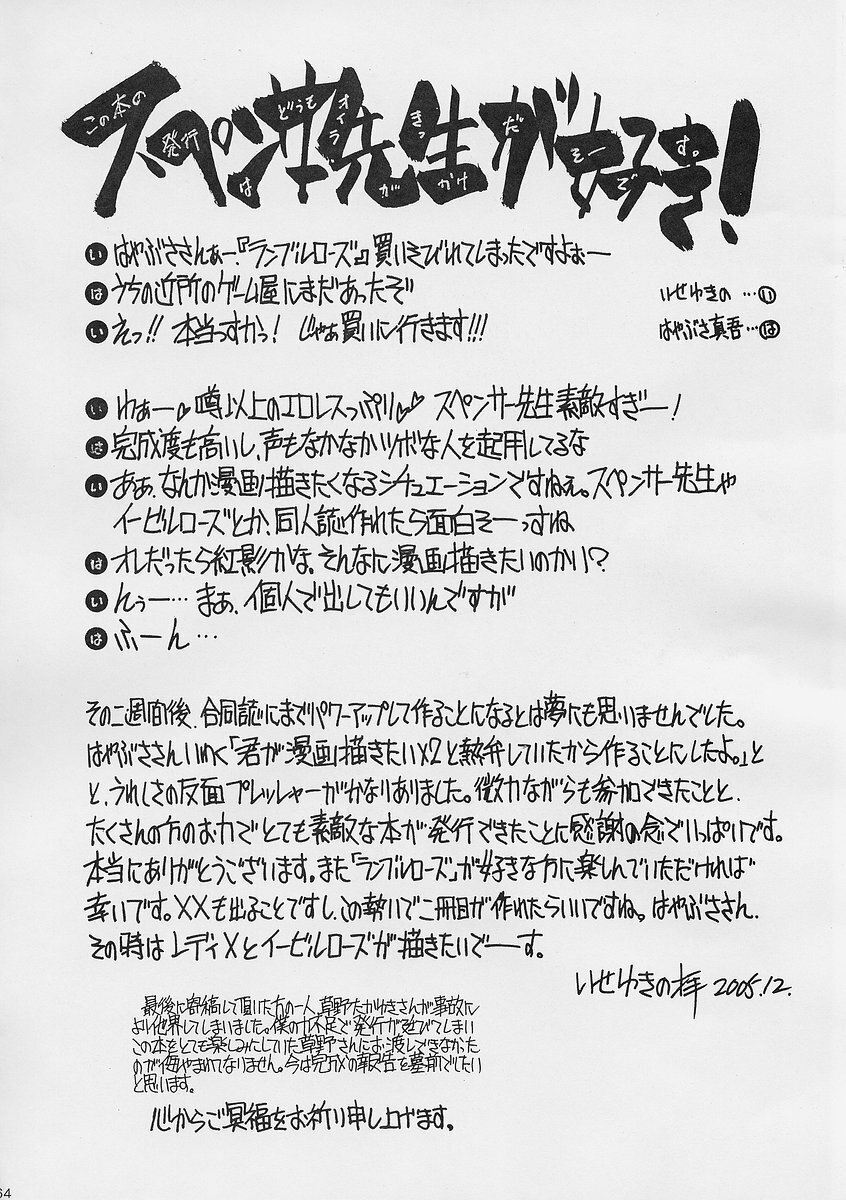 スペンサー先生が好き！
この本の発行はどうもオイラがきっかけだそーです。
い はやぶささんぉー、『ランブルローズ』買いそびれてしまったですよぉー
は うちの近所のゲーム屋にまだあったぞ
いせゆきの …い
い えっ!! 本当っすかっ! じゃぁ買いに行きます!!!
はやぶさ真吾…は
い わぁー♥噂以上のエロレスっぷり♥♥ スペンサー先生素敵すぎー!
は 完成度も高いし、声もなかなかツボな人を起用してるな
い あぁ、なんか漫画描きたくなるシチュエーションですねぇ。スペンサー先生や
イービルローズとか、同人誌作れたら面白そーっすね
は オレだったら紅影かな。そんなに漫画描きたいのかい?
い んぅー… まぁ、個人で出してもいいんですが
は ふーん…
その二週間後、合同誌にまでパワーアップして作ることになるとは夢にも思いませんでした。
はやぶささんいわく「君が漫画描きたいx2と熱弁していたから作ることにしたよ。」と
と、うれしさの反面プレッシャーがかなりありました。微力ながらも参加できたことと、
たくさんの方のお力でとても素敵な本が発行できたことに感謝の念でいっぱいです。
本当にありがとうございます。また「ランブルローズ」が好きな方に楽しんでいただければ
幸いです。XXも出ることですし、この勢いで二冊目が作れたらいいですね。はやぶささん、
その時はレディXとイービルローズが描きたいでーす。
いせゆきの拝 2005.12.
最後に寄稿して頂いた方の一人、草野たかゆきさんが事故に
より他界してしまいました。僕の力不足で発行が延びてしまい
この本をとても楽しみにしていた草野さんにお渡しできなかった
のが悔やまれてなりません。今は完成の報告を墓前でしたい
と思います。
心からご冥福をお祈り申し上げます。
64